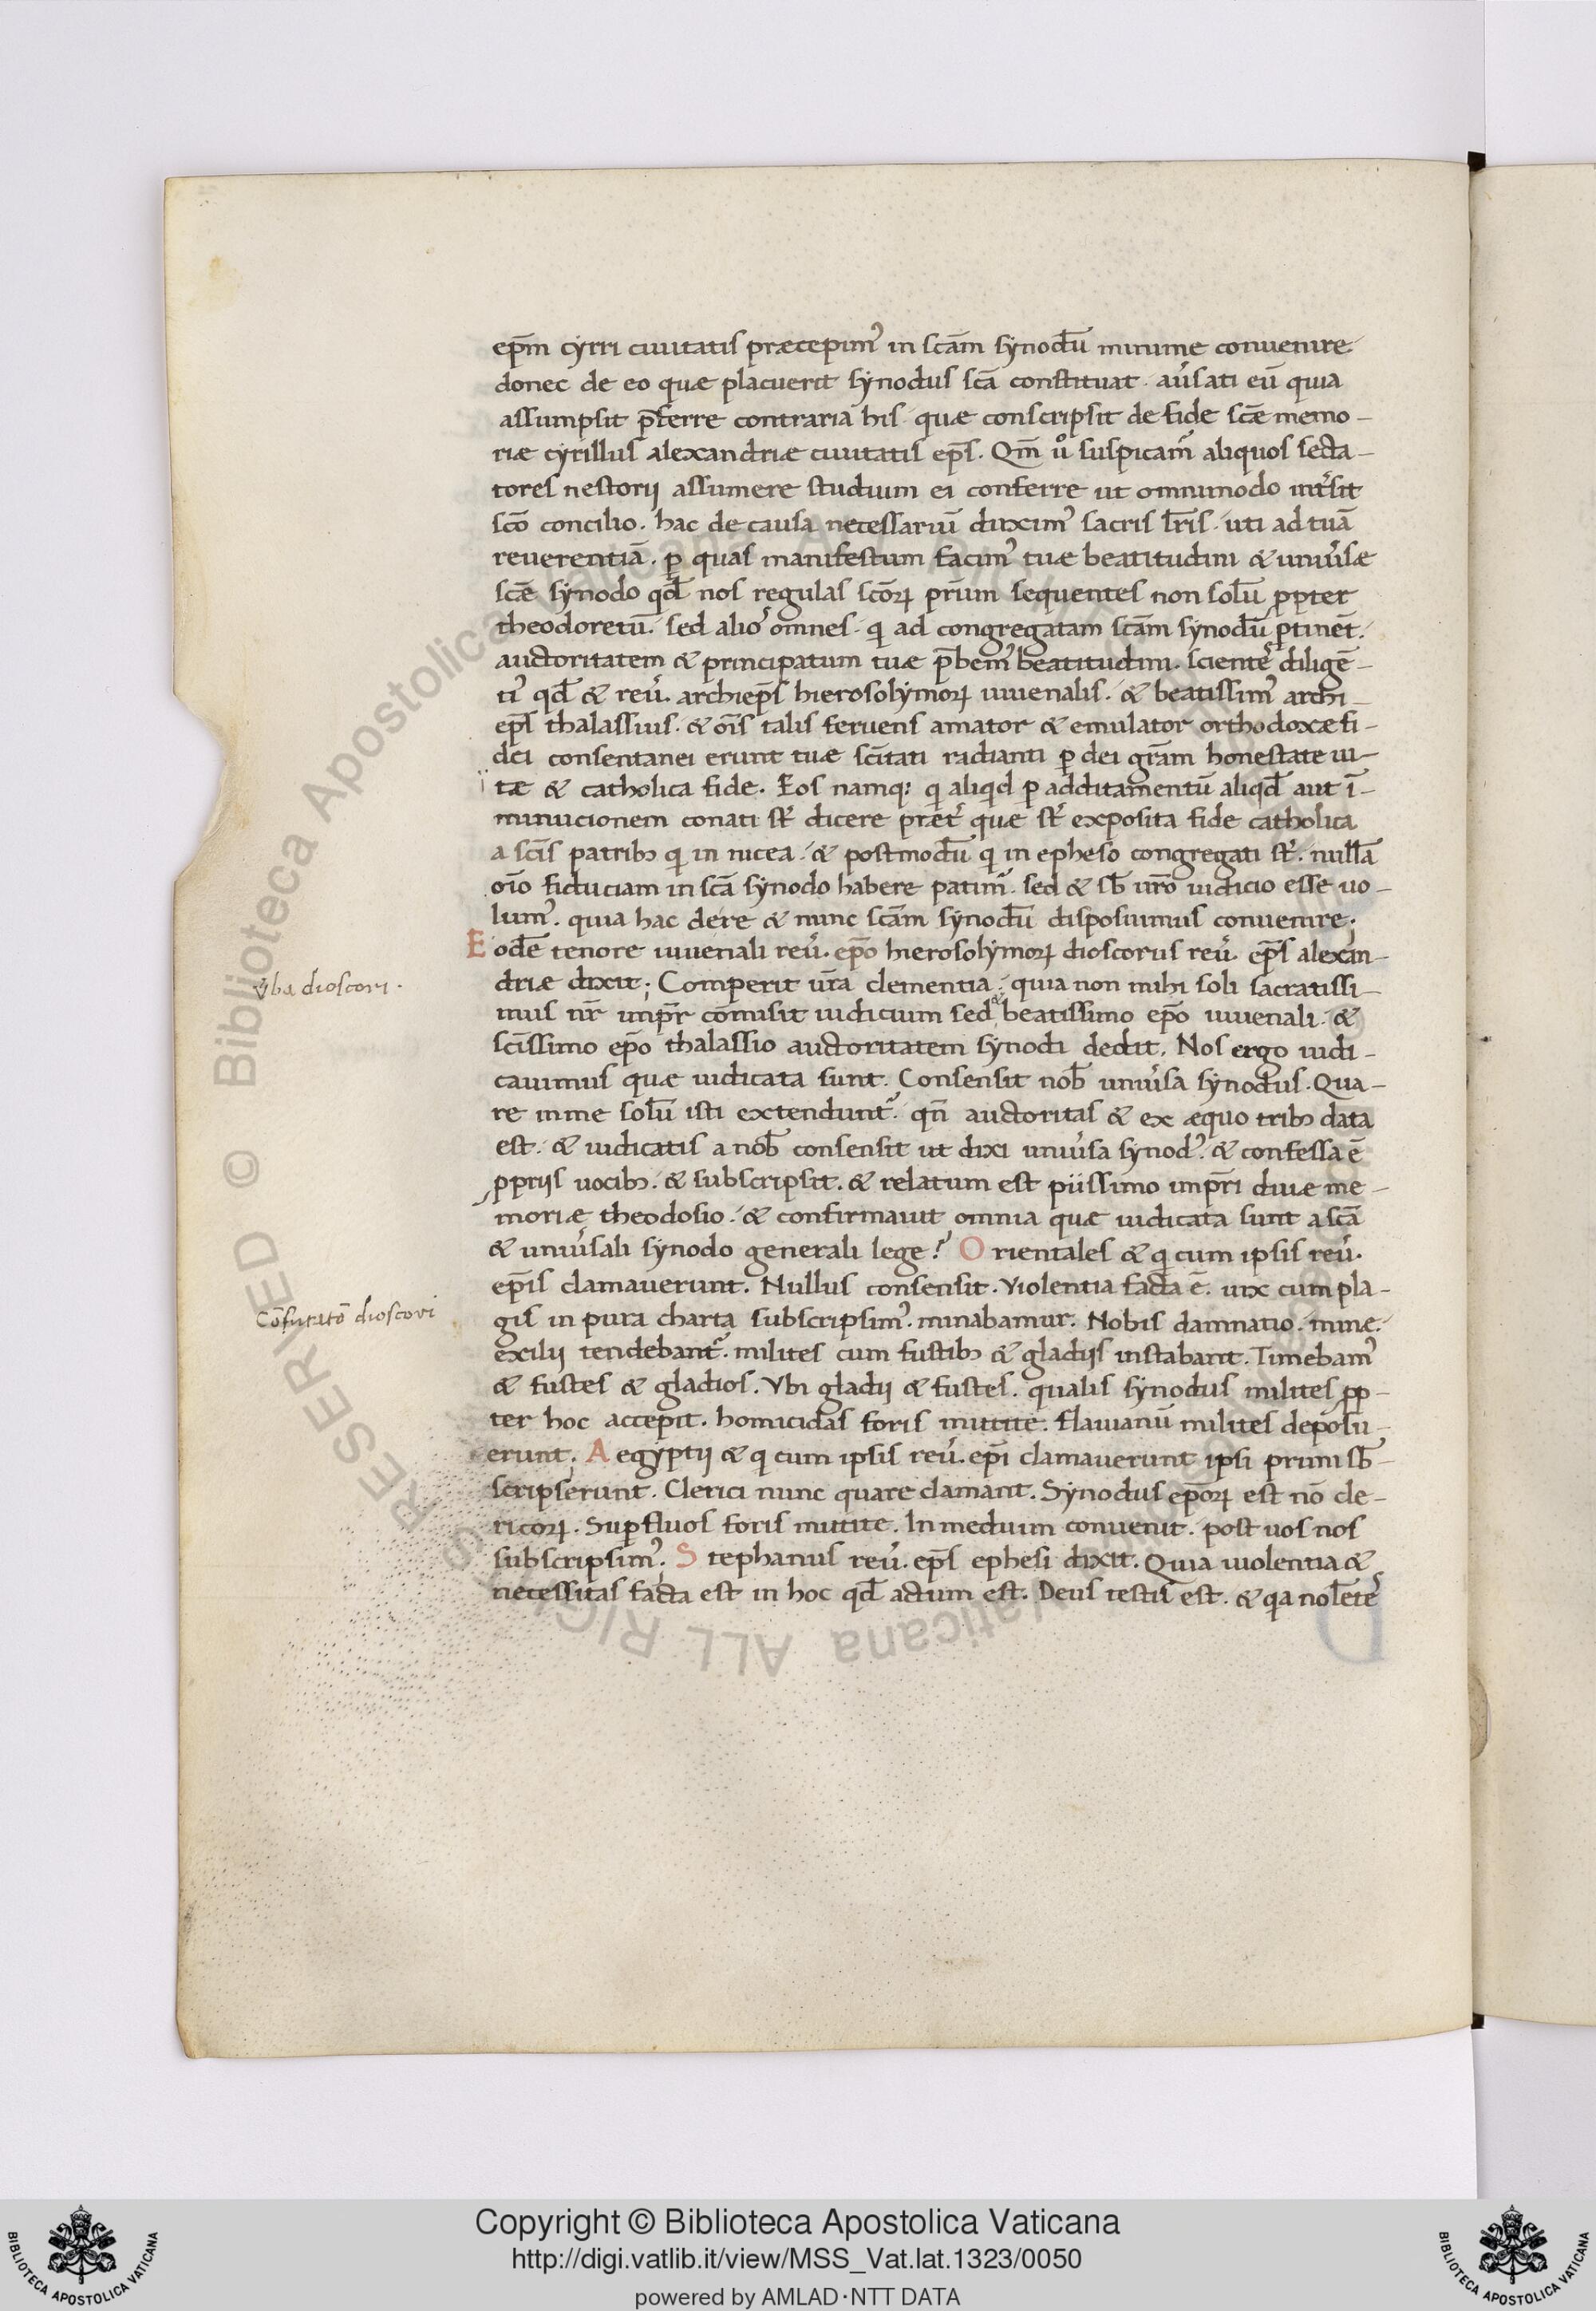 ep̄m cyrri ciuitatis præcepim᾽ in scām synodū minime conuenire.
donec de eo quæ placuerit synodus scā constituat. aủsati eū quia
assumpsit p̄ferre contraria his. quæ conscripsit de fide scǣ memo-
riæ cyrillus alexandriæ ciuitatis ep̄s. Qm̄ u̾ suspicam᾽ aliquos secta-
tores nestorij assumere studium ei conferre ut omnimodo int̾sit
scō concilio. hac de causa necessariū duxim᾽ sacris lr̄is. uti ad tuā
reuerentiā. p̱ quas manifestum facim᾽ tuæ beatitudini & uniu̾sæ
scē synodo qđ nos regulas scōꝝ pr̄um sequentes non solū ꝓpter
theodoretū. sed alio᾽ omnes. q ad congregatam scām synodū ꝑtinēt.
auctoritatem & principatum tuæ p̄bem᾽ beatitudini. sciente᾽ diligē-
ti᾽ qđ & reu̾. archiep̄s hierosolymoꝝ iuuenalis. & beatissim᾽ archi-
ep̄s thalassius. & oīs talis feruens amator & emulator orthodoxæ fi-
dei consentanei erunt tuæ scītati radianti ꝑ dei gr̄am honestate ui-
tæ & catholica fide. Eos namq; q aliqid ꝑ additamentū aliqđ aut ī-
minucionem conati st᾽ dicere præt᾽ quæ st᾽ exposita fide catholica
a scīs patribꝫ q in nicea. & postmodū q in epheso congregati st᾽. nullā
oīo fiduciam in scā synodo habere patim᾽. sed & sƀ ur̄o iudicio esse uo-
lum᾽. quia hac dere & nunc scām synodū disposuimus conuenire.
Eodē tenore iuuenali reu̾. ep̄o hierosolymoꝝ dioscorus reu̾. ep̄s alexan-
driæ dixit; Comperit ur̄a clementia. quia non mihi soli sacratissi-
mus nr̄ imp̄r cōmisit iudicium sed & beatissimo ep̄o iuuenali. &
scīssimo ep̄o thalassio auctoritatem synodi dedit. Nos ergo iudi-
cauimus quæ iudicata sunt. Consensit noƀ uniu̾sa synodus. Qua-
re in me solū isti extendunt᾽. qn̄ auctoritas & ex æquo tribꝫ data
est. & iudicatis a noƀ consensit ut dixi uniu̾sa synod᾽. & confessa ē
ꝓprijs uocibꝫ. & subscripsit. & relatum est piissimo imp̄ri diuæ me-
moriæ theodosio. & confirmauit omnia quæ iudicata sunt a scā
& uniu̾sali synodo generali lege. Orientales & q cum ipsis reu̾.
ep̄is clamauerunt. Nullus consensit. Violentia facta ē. uix cum pla-
gis in pura charta subscripsim᾽. minabamur. Nobis damnatio. minæ.
exilij tendebant᾽. milites cum fustibꝫ & gladijs instabant. Timebam᾽
& fustes & gladios. Vbi gladij & fustes. qualis synodus milites ꝓp-
ter hoc accepit. homicidas foris mittite. flauianū milites deposu-
erunt. Aegyptij & q cum ipsis reu̾. ep̄i clamauerunt ipsi primi sƀ-
scripserunt. Clerici nunc quare clamant. Synodus ep̄oꝝ est nō cle-
ricoꝝ. Suꝑfluos foris mittite. In medium conuenit. post uos nos
subscripsim᾽. Stephanus reu̾. ep̄s ephesi dixit. Quia uiolentia &
necessitas facta est in hoc qđ actum est. Deus testis est. & qa nolēte᾽
v̾ba dioscori.
Cōfutatō dioscori
Copyright © Biblioteca Apostolica Vaticana
http://digi.vatlib.it/view/MSS_Vat.lat.1323/0050
powered by AMLAD·NTT DATA
BIBLIOTECA APOSTOLICA VATICANA
BIBLIOTECA APOSTOLICA VATICANA